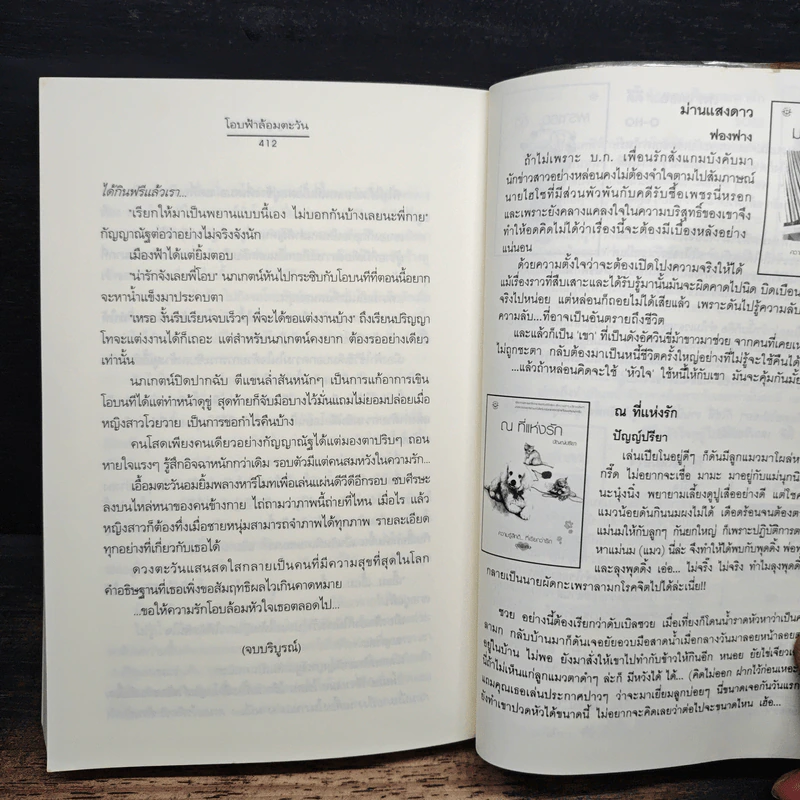 โอบฟ้าล้อมตะวัน
412
ได้กินฟรีแล้วเรา...
"เรียกให้มาเป็นพยานแบบนี้เอง ไม่บอกกันบ้างเลยนะพี่กาย"
กัญญาณัฐต่อว่าอย่างไม่จริงจังนัก
เมืองฟ้าได้แต่ยิ้มตอบ
"น่ารักจังเลยพี่โอบ" นภเกตน์หันไปกระซิบกับโอบนทีที่ตอนนี้อยาก
จะหาน้ำแข็งมาประคบตา
"เหรอ งั้นรีบเรียนจบเร็วๆ พี่จะได้ขอแต่งงานบ้าง" ถึงเรียนปริญญา
โทจะแต่งงานได้ก็เถอะ แต่สำหรับนภเกตน์คงยาก ต้องรออย่างเดียว
เท่านั้น
นภเกตน์ปิดปากฉับ ตีแขนล่ำสันหนักๆ เป็นการแก้อาการเขิน
โอบนทีได้แต่ทำหน้าดุขู่ สุดท้ายก็จับมือบางไว้มั่นแถมไม่ยอมปล่อยเมื่อ
หญิงสาวโวยวาย เป็นการขอกำไรคืนบ้าง
คนโสดเพียงคนเดียวอย่างกัญญาณัฐได้แต่มองตาปริบๆ ถอน
หายใจแรงๆ รู้สึกอิจฉาหนักกว่าเดิม รอบตัวมีแต่คนสมหวังในความรัก...
เอื้อมตะวันอมยิ้มพลางหารีโมทเพื่อเล่นแผ่นดีวีดีอีกรอบ ซบศีรษะ
ลงบนไหล่หนาของคนข้างกาย ไถ่ถามว่าภาพนี้ถ่ายที่ไหน เมื่อไร แล้ว
หญิงสาวก็ต้องทึ่งเมื่อชายหนุ่มสามารถจำภาพได้ทุกภาพ รายละเอียด
ทุกอย่างที่เกี่ยวกับเธอได้
ดวงตะวันแสนสดใสกลายเป็นคนที่มีความสุขที่สุดในโลก
คำอธิษฐานที่เธอเพิ่งขอสัมฤทธิผลไวเกินคาดหมาย
...ขอให้ความรักโอบล้อมหัวใจเธอตลอดไป...
(จบบริบูรณ์)
ม่านแสงดาว
ฟองฟาง
ถ้าไม่เพราะ บ.ก. เพื่อนรักสั่งแกมบังคับมา
นักข่าวสาวอย่างหล่อนคงไม่ต้องจำใจตามไปสัมภาษณ์
นายไฮโซที่มีส่วนพัวพันกับคดีรับซื้อเพชรนี่หรอก
และเพราะยังคลางแคลงใจในความบริสุทธิ์ของเขาจึง
ทำให้อดคิดไม่ได้ว่าเรื่องนี้จะต้องมีเบื้องหลังอย่าง
แน่นอน
ด้วยความตั้งใจว่าจะต้องเปิดโปงความจริงให้ได้
แม้เรื่องราวที่สืบเสาะและได้รับรู้มานั้นมันจะผิดคาดไปนิด บิดเบือน
จริงไปหน่อย แต่หล่อนก็ถอยไม่ได้เสียแล้ว เพราะดันไปรู้ความลับ
ความลับ...ที่อาจเป็นอันตรายถึงชีวิต
และแล้วก็เป็น 'เขา' ที่เป็นดั่งอัศวินขี่ม้าขาวมาช่วย จากคนที่เคย
ไม่ถูกชะตา กลับต้องมาเป็นหนี้ชีวิตครั้งใหญ่อย่างที่ไม่รู้จะใช้คืนได้
...แล้วถ้าหล่อนคิดจะใช้ 'หัวใจ' ใช้หนี้ให้กับเขา มันจะคุ้มกันมั้ย
ณ ที่แห่งรัก
ปัญญ์ปรียา
เล่นเปียโนอยู่ดีๆ ก็ดันมีลูกแมวมาโผล่
กรี๊ด ไม่อยากจะเชื่อ มามะ มาอยู่กับแม่นุกนิ
นะนุ่งนิ้ง พยายามเลี้ยงดูปูเสื่ออย่างดี แต่ใช
แมวน้อยดันกินนมผงไม่ได้ เดือดร้อนจนต้อง
แม่นมให้กับลูกๆ กันยกใหญ่ ก็เพราะปฏิบัติการ
หาแม่นม (แมว) นี่ล่ะ จึงทำให้ได้พบกับพุดดิ้ง
และลุงพุดดิ้ง เอ่อ... ไม่จริ๊ง ไม่จริง ทำไมลุงพุดดิ้
กลายเป็นนายผัดกะเพราลามกโรคจิตไปได้ล่ะเนี่ย!!
ซวย อย่างนี้ต้องเรียกว่าดับเบิลซวย เมื่อเที่ยงก็โดนน้ำราดหัวหาว่าเป็น
ลามก กลับบ้านมาก็ดันเจอยัยอวบมือสาดน้ำเมื่อกลางวันมาลอยหน้าลอย
อยู่ในบ้าน ไม่พอ ยังมาสั่งให้เขาไปทำกับข้าวให้กินอีก หนอย ยัยไข่เจียว
นี่ถ้าไม่เห็นแก่ลูกแมวตาดำๆ ล่ะก็ มีหวังได้ ได้... (คิดไม่ออก ฝากไว้ก่อนเหอะ
แถมคุณเธอเล่นประกาศปาวๆ ว่าจะมาเยี่ยมลูกบ่อยๆ นี่ขนาดเจอกันวันแรก
ยังทำเขาปวดหัวได้ขนาดนี้ ไม่อยากจะคิดเลยว่าต่อไปจะขนาดไหน เฮ้อ...
ณ ที่แห่งรัก
ปัญญ์ปรียา